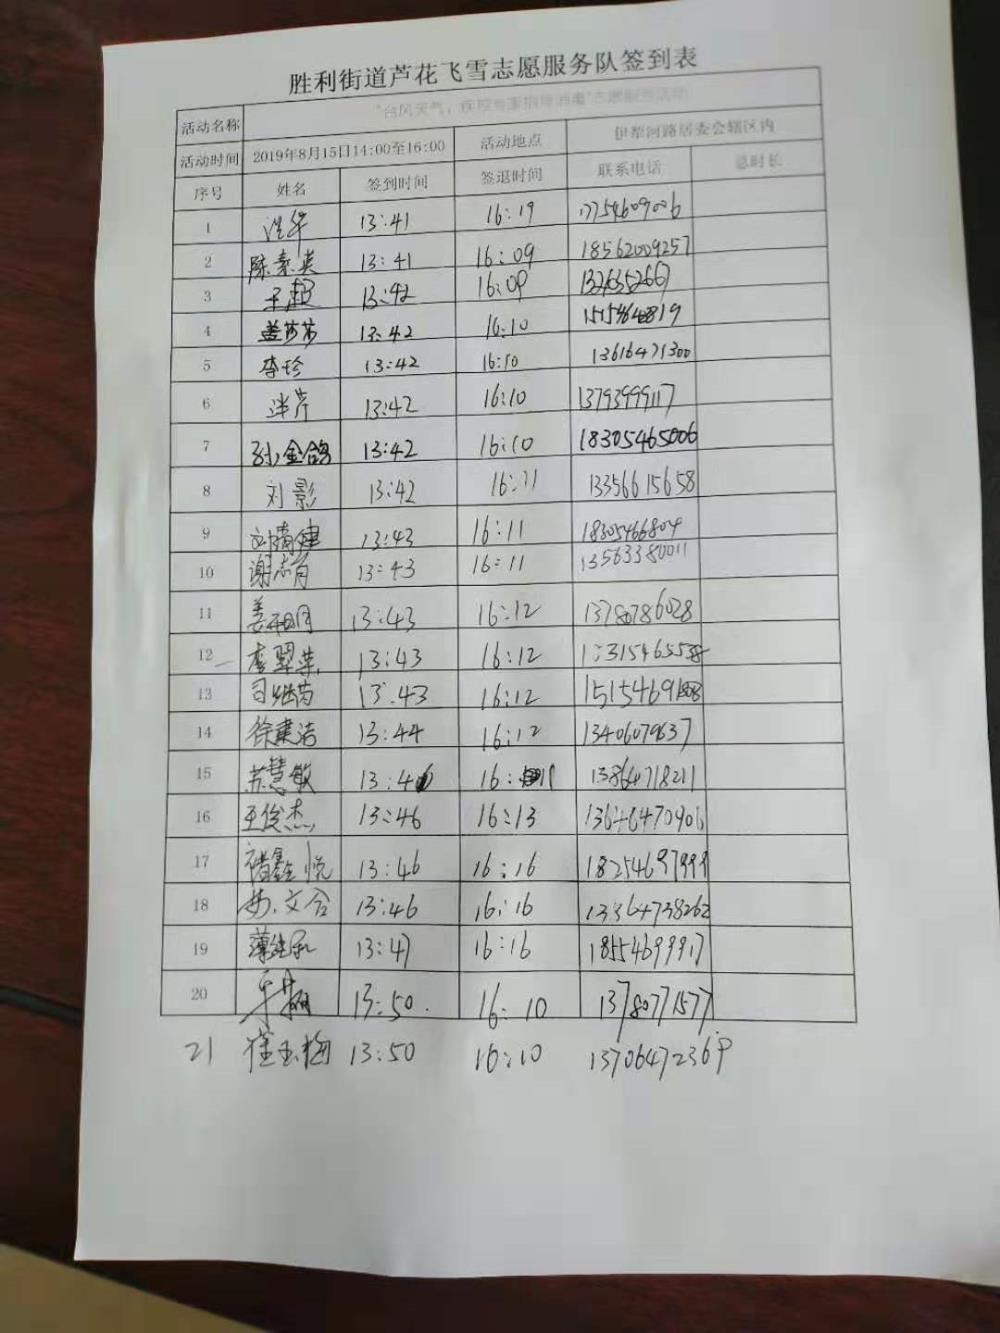 胜利街道芦花飞雪志愿服务队签到表
活动名称 "台风天气，疾控专家指导消毒"志愿服务活动
活动时间 2019年8月15日14:00至16:00 活动地点 伊犁河路居委会辖区内
序号 姓名 签到时间 签退时间 联系电话 总时长
1 13:41 16:19 17754609006
2 陈素英 13:41 16:09 18562009257
3 王超 13:42 16:09
4 盖莎莎 13:42 16:10
5 李珍 13:42 16:10 13616471300
6 13:42 16:10 13793999117
7 孙金鸽 13:42 16:10 18305465006
8 刘影 13:42 16:11 13356615658
9 13:43 16:11 18305466804
10 谢志肖 13:43 16:11 13563380011
11 13:43 16:12 13780786028
12 李翠荣 13:43 16:12
13 13:43 16:12
14 徐建洁 13:44 16:12 13406079637
15 苏慧敏 16: 13864718211
16 王俊杰 13:46 16:13 13646470906
17 褚鑫悦 13:46 16:16 18254697999
18 13:46 16:16 13364738262
19 13:47 16:16 18554699917
20 13:50 16:10 13780771577
21 崔玉梅 13:50 16:10